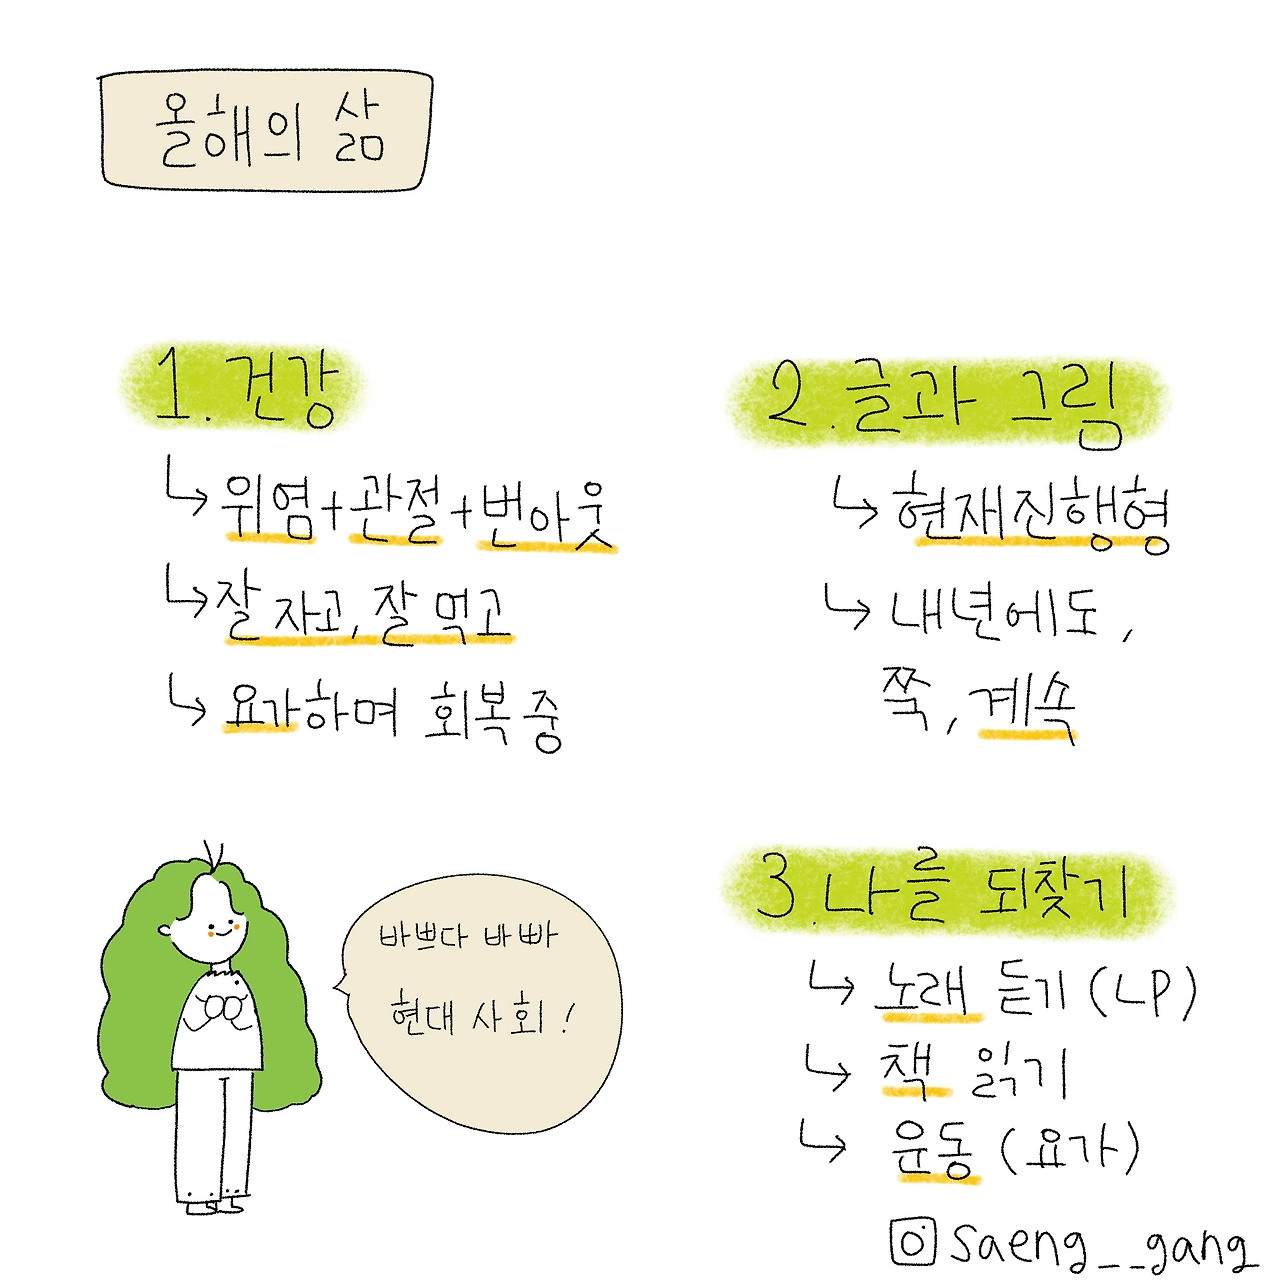 올해의 삶
1. 건강
↳ 위염+관절+번아웃
↳ 잘 자고, 잘 먹고
↳ 요가하며 회복 중
2. 글과 그림
↳ 현재진행형
↳ 내년에도,
쭉, 계속
바쁘다 바빠
현대 사회!
3. 나를 되찾기
↳ 노래 듣기 (LP)
↳ 책 읽기
↳ 운동 (요가)
saeng__gang